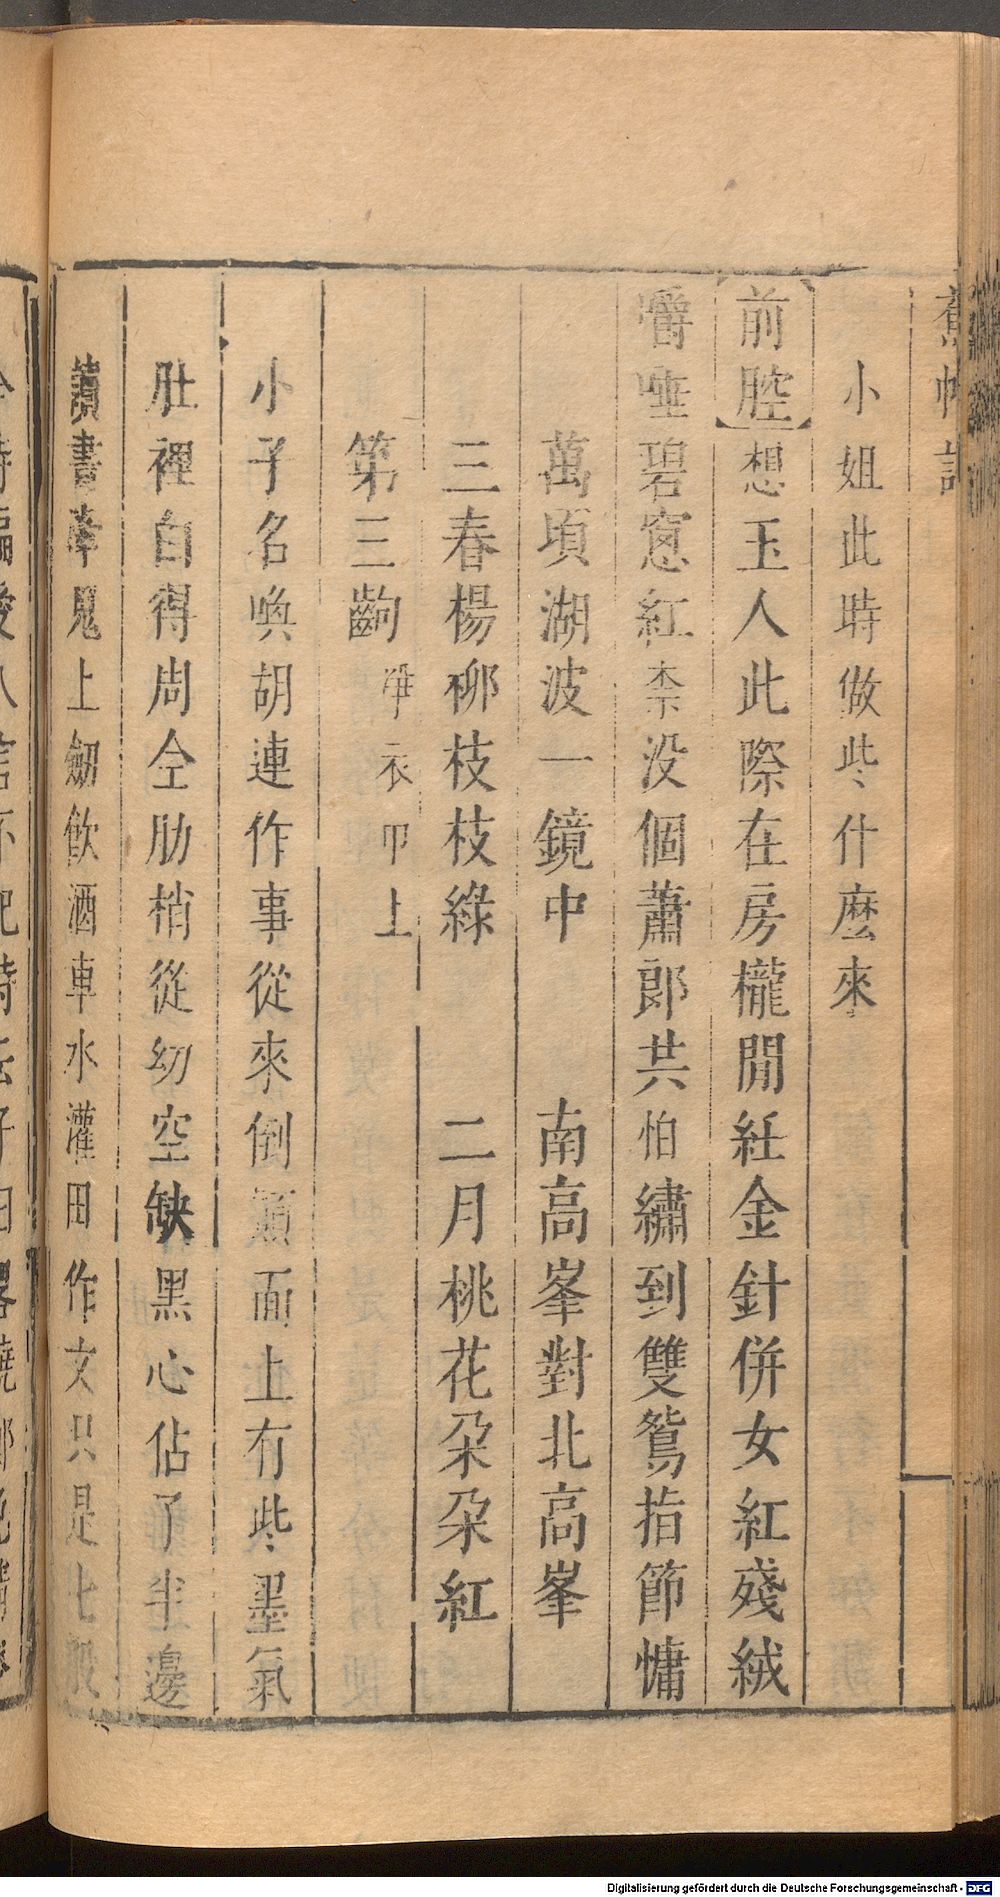 蕉帕記
小姐此時做些什麽來
【前腔】想玉人此際在房櫳閒紝金針併女紅殘絨
嚼唾碧窓紅柰没個蕭郎共怕繡到雙鴛指節慵
萬頃湖波一鏡中　南高峯對北高峯
三春楊柳枝枝綠　二月桃花朶朶紅
第三齣　淨衣巾上
小子名喚胡連作事從來倒顛面上有些墨氣
肚裡自得周全肋梢從幼空缺黑心佔了半邊
讀書拳鬼上劒飲酒車水灌田作文只是七
Digitalisierung gefördert durch die Deutsche Forschungsgemeinschaft - DFG